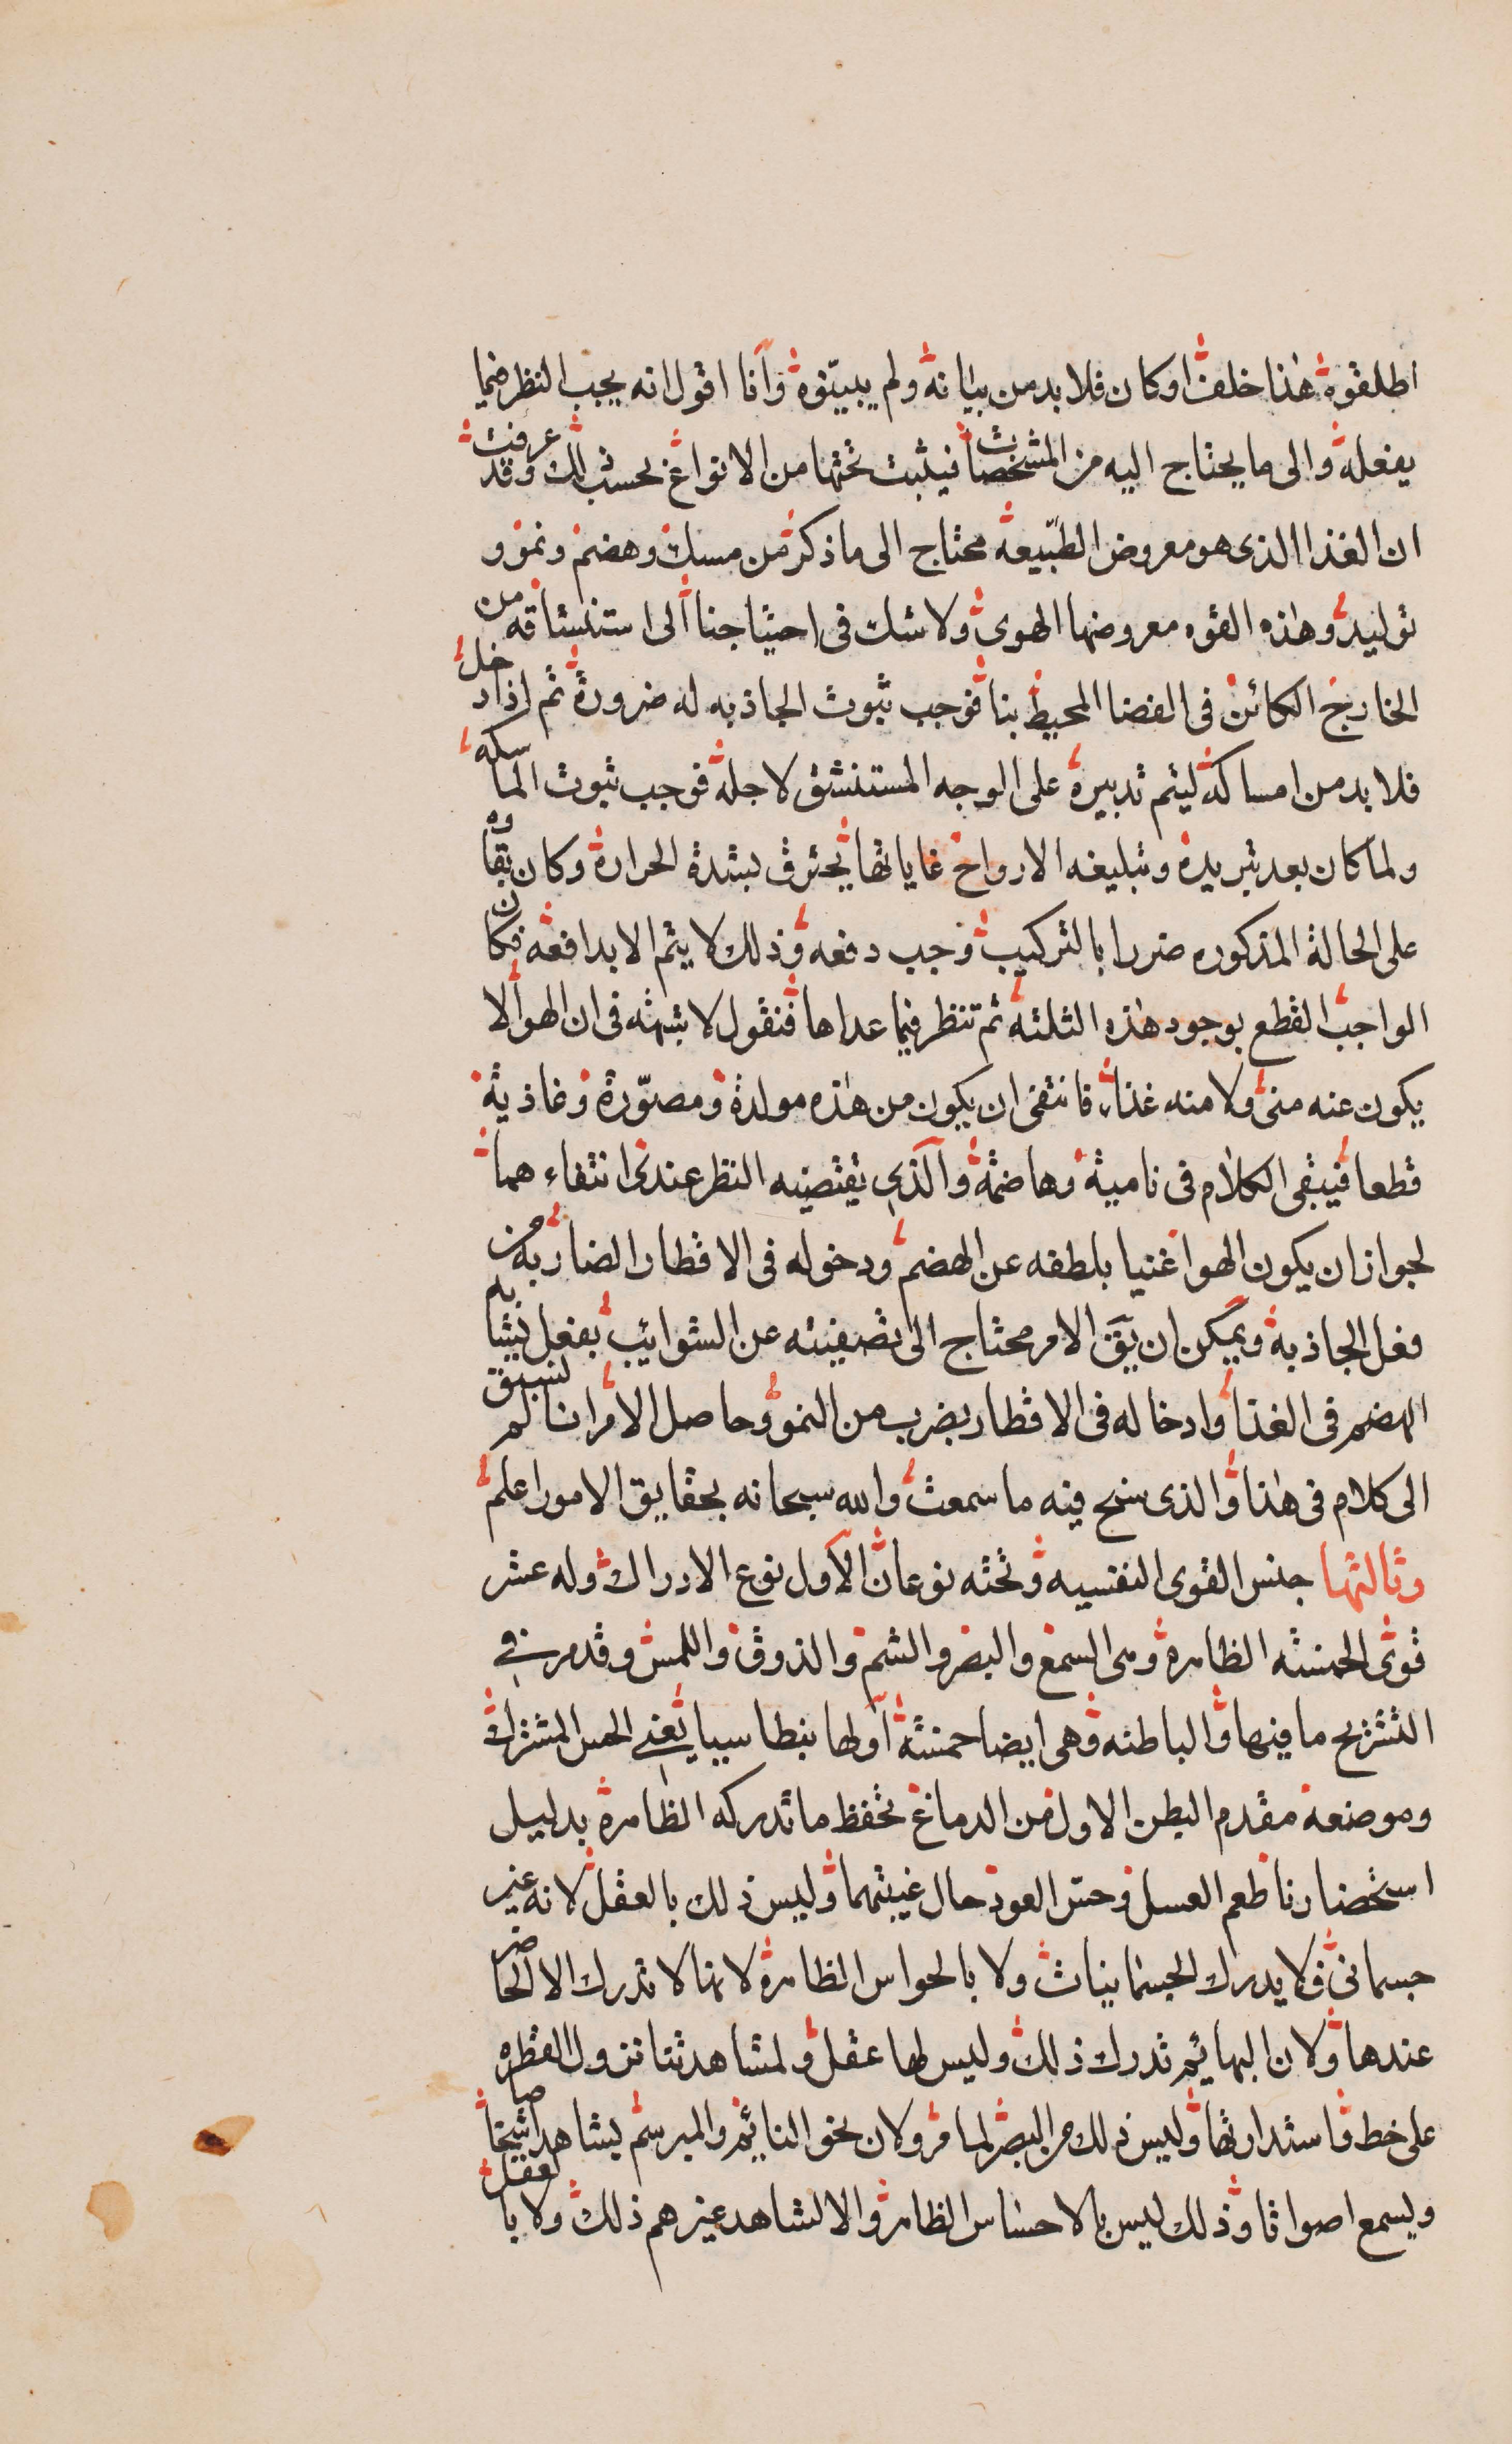 اطلقوه هذا خلف او كان فلا بد من بيانه ولم يبينوه وانا اقول انه يجب النظر فيما
يفعله والى ما يحتاج اليه من المشخصات فيثبت تحتها من الانواع بحسب ذلك وقد عرفت
ان الغذا الذى هو معروض الطبيعة محتاج الى ما ذكر من مسك وهضم ونمو و
توليد وهذه القوه معروضها الهوى ولا شك فى احتياجنا الى استنشاقه من
الخارج الكائن فى الفضا المحيط بنا فوجب ثبوت الجاذبه له ضرورة ثم اذا دخل
فلا بد من امساكه ليتم تدبيره على الوجه المستنشق لاجله فوجب ثبوت الماسكه
ولما كان بعد تبريده وتبليغه الارواح غاياتها يحترق بشدة الحرارة وكان بقاوه
على الحالة المذكوره ضررا بالتركيب وجب دفعه وذلك لا يتم الا بدافعه فكان
الواجب القطع بوجود هذه الثلثه ثم تنظر فيما عداها فنقول لا شبهه فى ان الهوا لا
يكون عنه منى ولا منه غذاء فانتفى ان يكون من هذه مولدة ومصوّرة وغاذية
قطعا فيبقى الكلام فى نامية وهاضمة والذى يقتضيه النظر عندى انتفاء هما
لجواز ان يكون الهوا غنيا بلطفه عن الهضم ودخوله فى الاقطار الضاربه من
فعل الجاذبة ويمكن ان يق الامر محتاج الى تصفيته عن الشوائب بفعل يشابه
الهضم فى الغذا وادخاله فى الاقطار بضرب من النمو وحاصل الامر انا لم نسبق
الى كلام فى هذا والذى سنح فيه ما سمعت والله سبحانه بحقايق الامور اعلم
وثالثها جنس القوى النفسيه وتحته نوعان الاول نوع الادراك وله عشر
قوى الخمسه الظاهرة وهى السمع والبصر والشم والذوق واللمس وقد مر فى
التشريح ما فيها والباطنه وهى ايضا خمسة اولها بنطاسيا يعنى الحس المشترك
وموضعه مقدم البطن الاول من الدماغ تحفظ ما تدركه الظاهرة بدليل
استحضارنا طعم العسل وحس العود حال غيبتهما وليس ذلك بالعقل لانه غير
جسمانى فلا يدرك الجسمانيات ولا بالحواس الظاهرة لانها لا تدرك الا الحاضر
عندها ولان البهائم تدرك ذلك وليس لها عقل ولمشاهدتنا نزول القطره
على خط واستدارتها وليس ذلك من البصر لما مر ولان نحو النائم والمبرسم يشاهد اشخاصا
ويسمع اصواتا وذلك ليس بالاحساس الظاهر والا لشاهد غيرهم ذلك ولا بالعقل